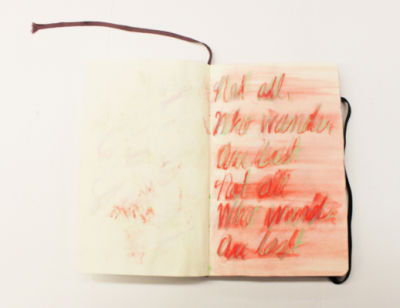 Not all
who wander
are lost
Not all
who wander
are lost